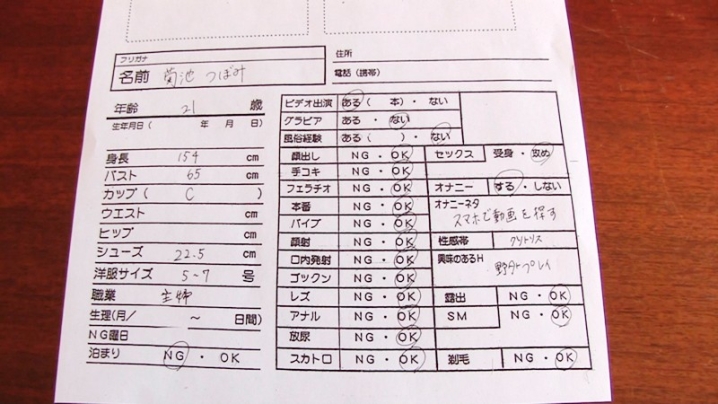 フリガナ
名前 菊池 つぼみ
住所
電話(携帯)
年齢 21 歳
生年月日( 年 月 日)
身長 154 cm
バスト 65 cm
カップ( C )
ウエスト cm
ヒップ cm
シューズ 22.5 cm
洋服サイズ 5-7 号
職業 主婦
生理(月/ ~ 日間)
NG曜日
泊まり NG・OK
ビデオ出演 ある( 本)・ない
グラビア ある・ない
風俗経験 ある( )・ない
顔出し NG・OK
手コキ NG・OK
フェラチオ NG・OK
本番 NG・OK
バイブ NG・OK
顔射 NG・OK
口内発射 NG・OK
ゴックン NG・OK
レズ NG・OK
アナル NG・OK
放尿 NG・OK
スカトロ NG・OK
セックス 受身・攻め
オナニー する・しない
オナニーネタ
スマホで動画を探す
性感帯 クリトリス
興味のあるH
野外プレイ
露出 NG・OK
SM NG・OK
剃毛 NG・OK